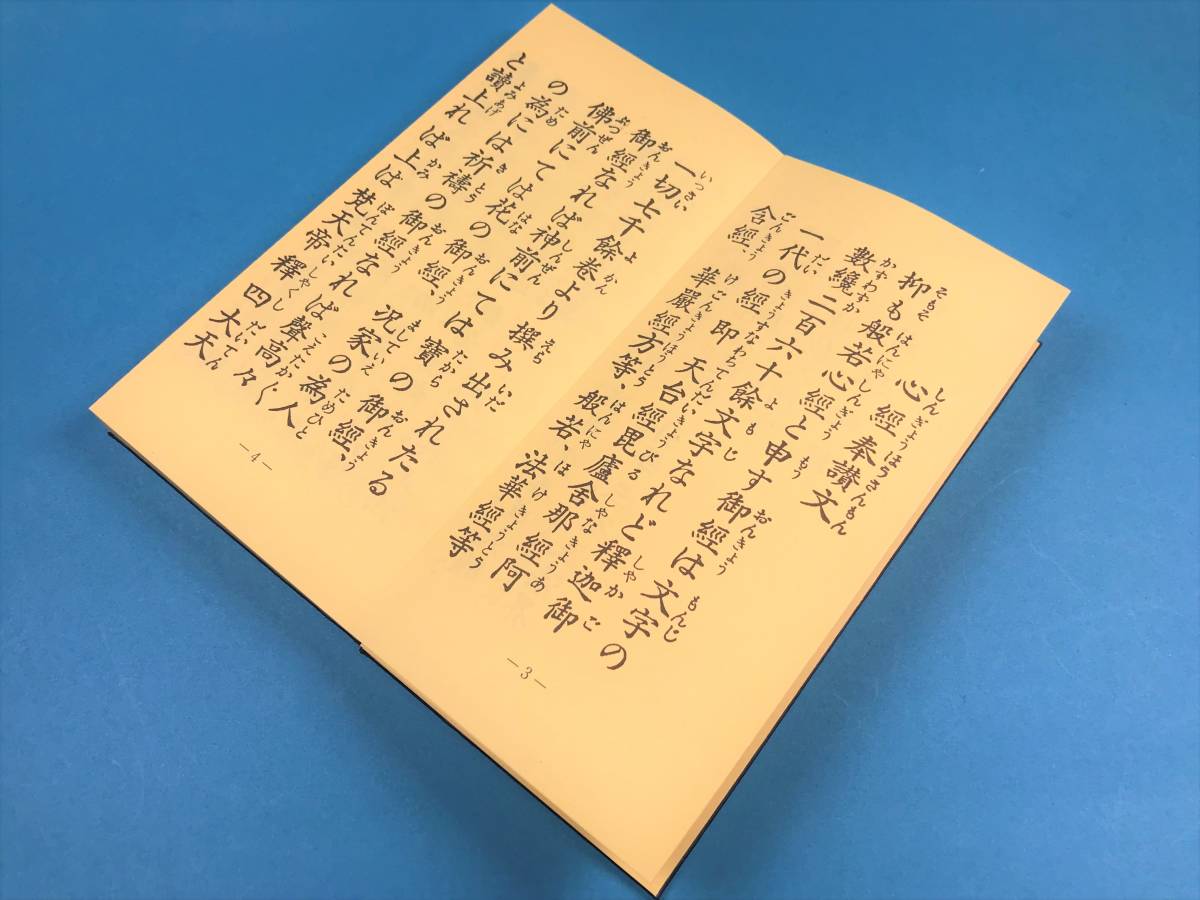 心經奉讃文
抑も般若心經と申す御經は文字の
數纔二百六十餘文字なれど釋迦御
一代の經即天台經毘廬舍那經阿
含經、華嚴經方等、般若、法華經等
—3—
一切七千餘巻より撰み出されたる
御經なれば神前にては寶の御經、
佛前にては花の御經、況家の為人
の為には祈禱の御經なれば聲高々
と讀上れば上は梵天帝釋四大天
—4—